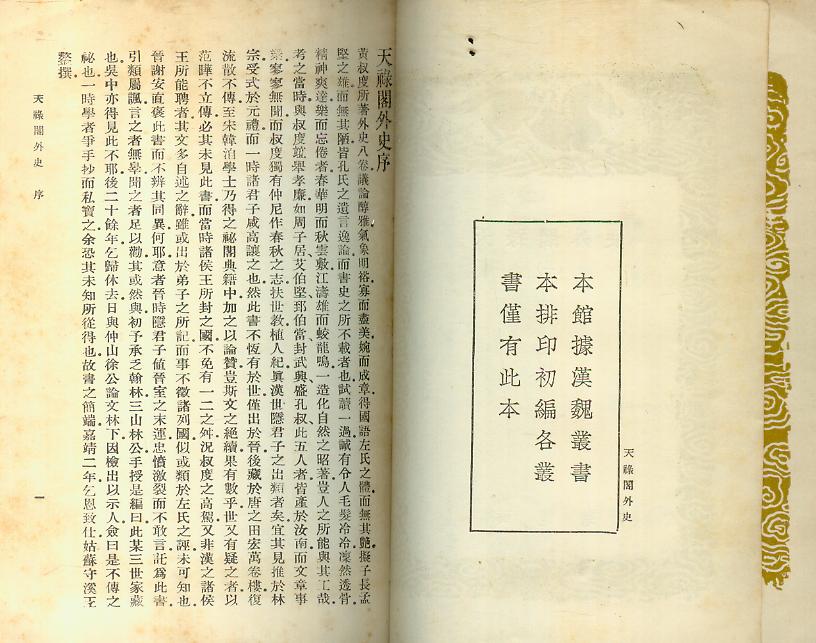 本館據漢魏叢書
本排印初編各叢
書僅有此本
天祿閣外史
天祿閣外史序
黃叔度所著外史八卷議論醇雅氣象明裕寡而盡美婉而成章得國語左氏之體而無其艷擬子長孟
堅之雄而無其陋皆孔氏之遺言逸論而書史之所不載者也試讀一過誠有令人毛髮冷冷凜然透骨
精神爽達樂而忘倦者春華明而秋雲敷江濤雄而蛟龍鳴一造化自然之略著豈人之所能與其工哉
考之當時與叔度並舉孝廉如周子居艾伯堅郅伯當封武興盛孔叔此五人者皆產於汝南而文章事
業寥寥無聞而叔度獨有仲尼作春秋之志扶世教植人紀眞漢世隱君子之出類者矣宜其見推於林
宗受式於元禮而一時諸君子咸高讓之也然此書不恆有於世僅出於晉後藏於唐之田宏萬卷樓復
流散不傳至宋韓洎學士乃得之祕閣典籍中加之以論贊豈斯文之絕續果有數乎世又有疑之者以
范曄不立傳必其未見此書而當時諸侯王所封之國不免有一二之舛況叔度之高駕又非漢之諸侯
王所能聘者其文多自述之辭雖或出於弟子之所記而事不徵諸列國似或類於左氏之誣未可知也
晉謝安直褒此書而不辨其同異何耶意者晉時隱君子値晉室之末運忠憤激裂而不敢言託爲此書
引類屬諷言之者無辜聞之者足以勸其或然與初予承乏翰林三山林公手授是編曰此某三世家藏
也吳中亦得見此不耶後二十餘年乞歸休去日與仲山徐公論文林下因檢出以示人僉曰是不傳之
祕也一時學者爭手抄而私寶之余恐其未知所從得也故書之簡端嘉靖二年乞恩致仕姑蘇守溪王
鏊撰
天祿閣外史 序
一